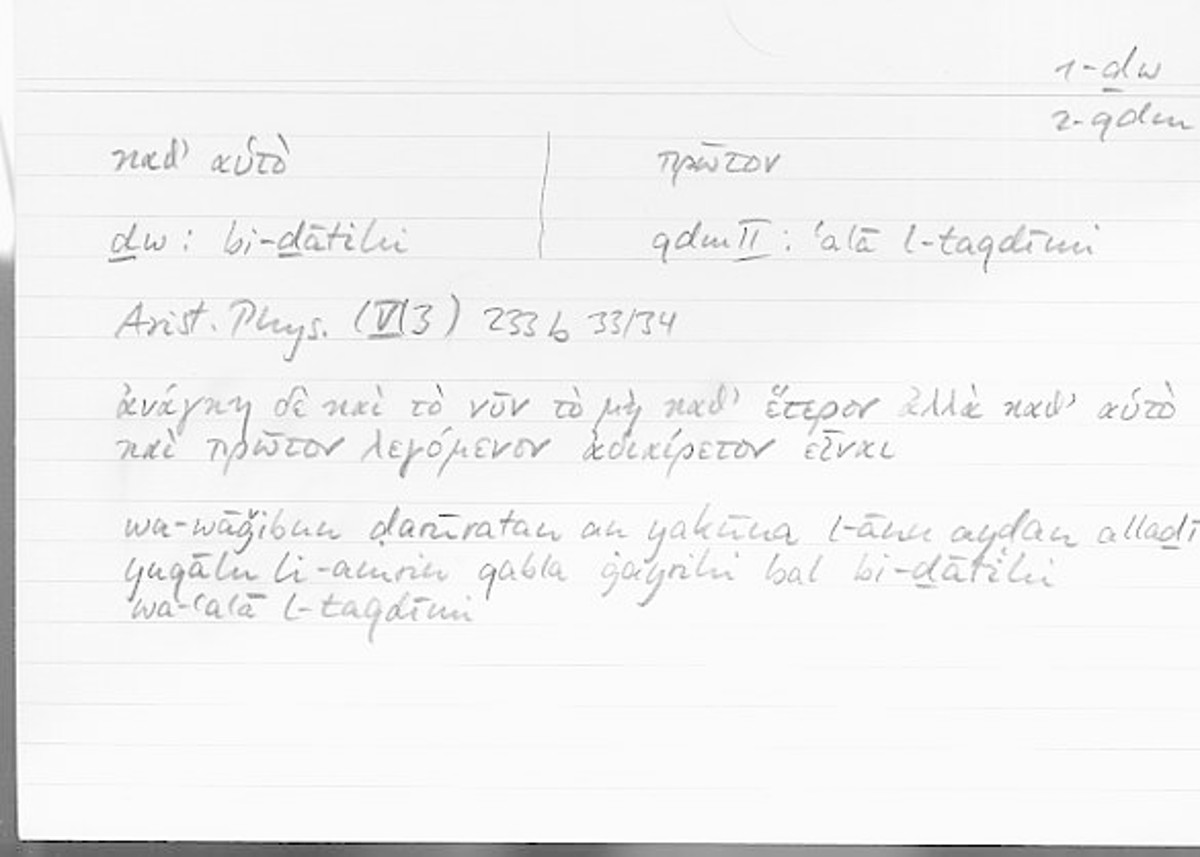 1-ḏw
2-qdm
καθ' αὑτὸ
πρῶτον
ḏw: bi-ḏātihi
qdm II: ʿalā l-taqdīmi
Arist. Phys. (VI3) 233b 33/34
ἀνάγκη δὲ καὶ τὸ νῦν τὸ μὴ καθ' ἕτερον ἀλλὰ καθ' αὑτὸ
καὶ πρῶτον λεγόμενον ἀδιαίρετον εἶναι
wa-wāǧibun ḍarūratan an yakūna l-ānu ayḍan allaḏī
yuqālu li-amrin qabla ġayrihi bal bi-ḏātihi
wa-ʿalā l-taqdīmi